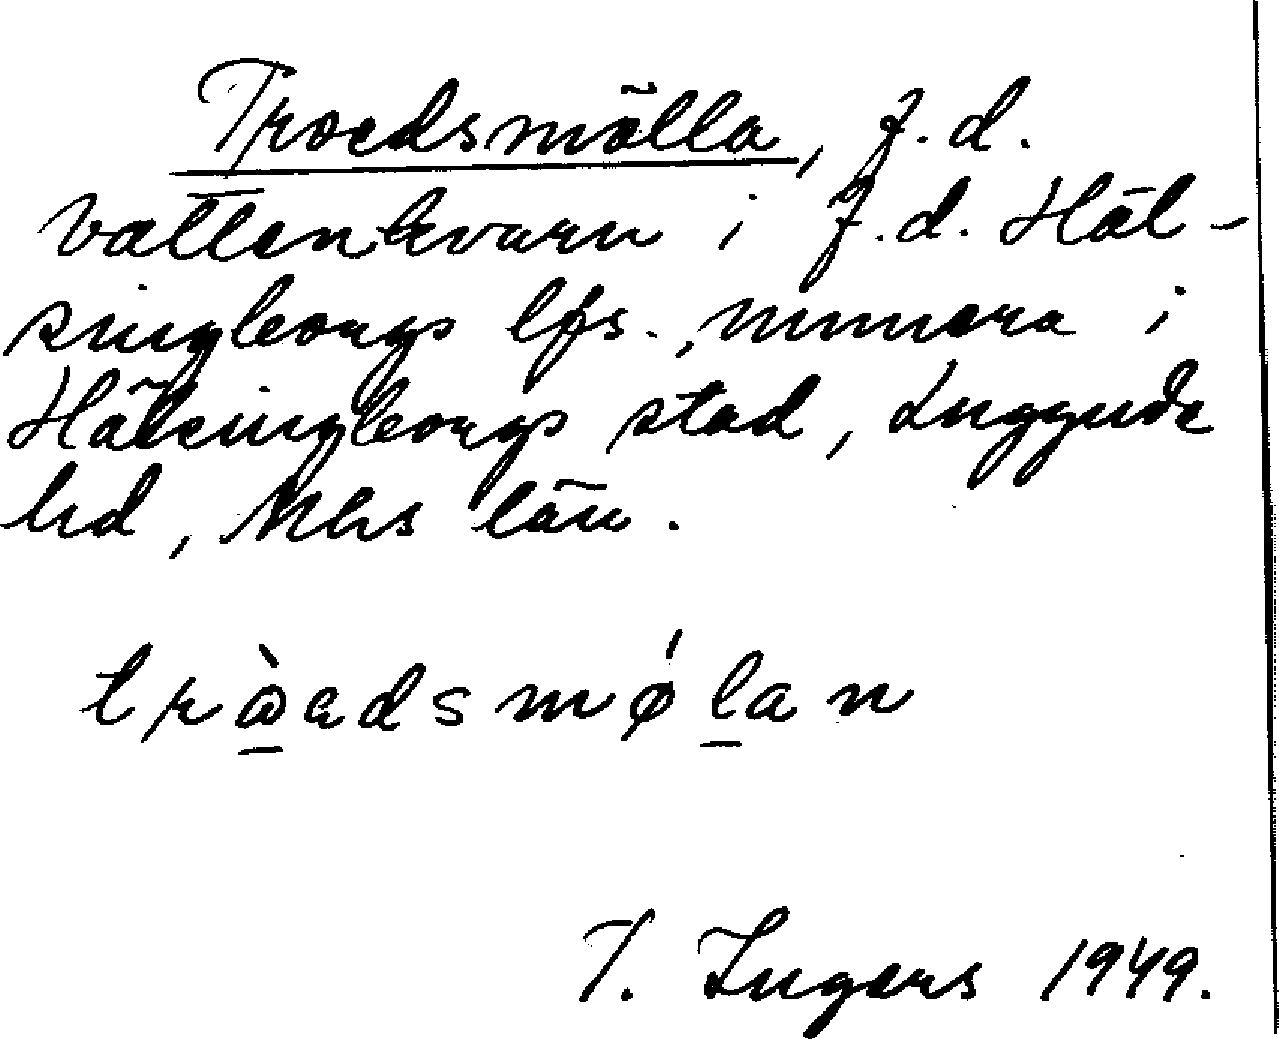 Troedsmölla, f.d.
vattenkvarn i f.d. Häl-
singborgs lfs., numera i
Hälsingborgs stad, Luggude
hd, Mhs län.
trὰedsmǿlan
I. Ingers 1949.